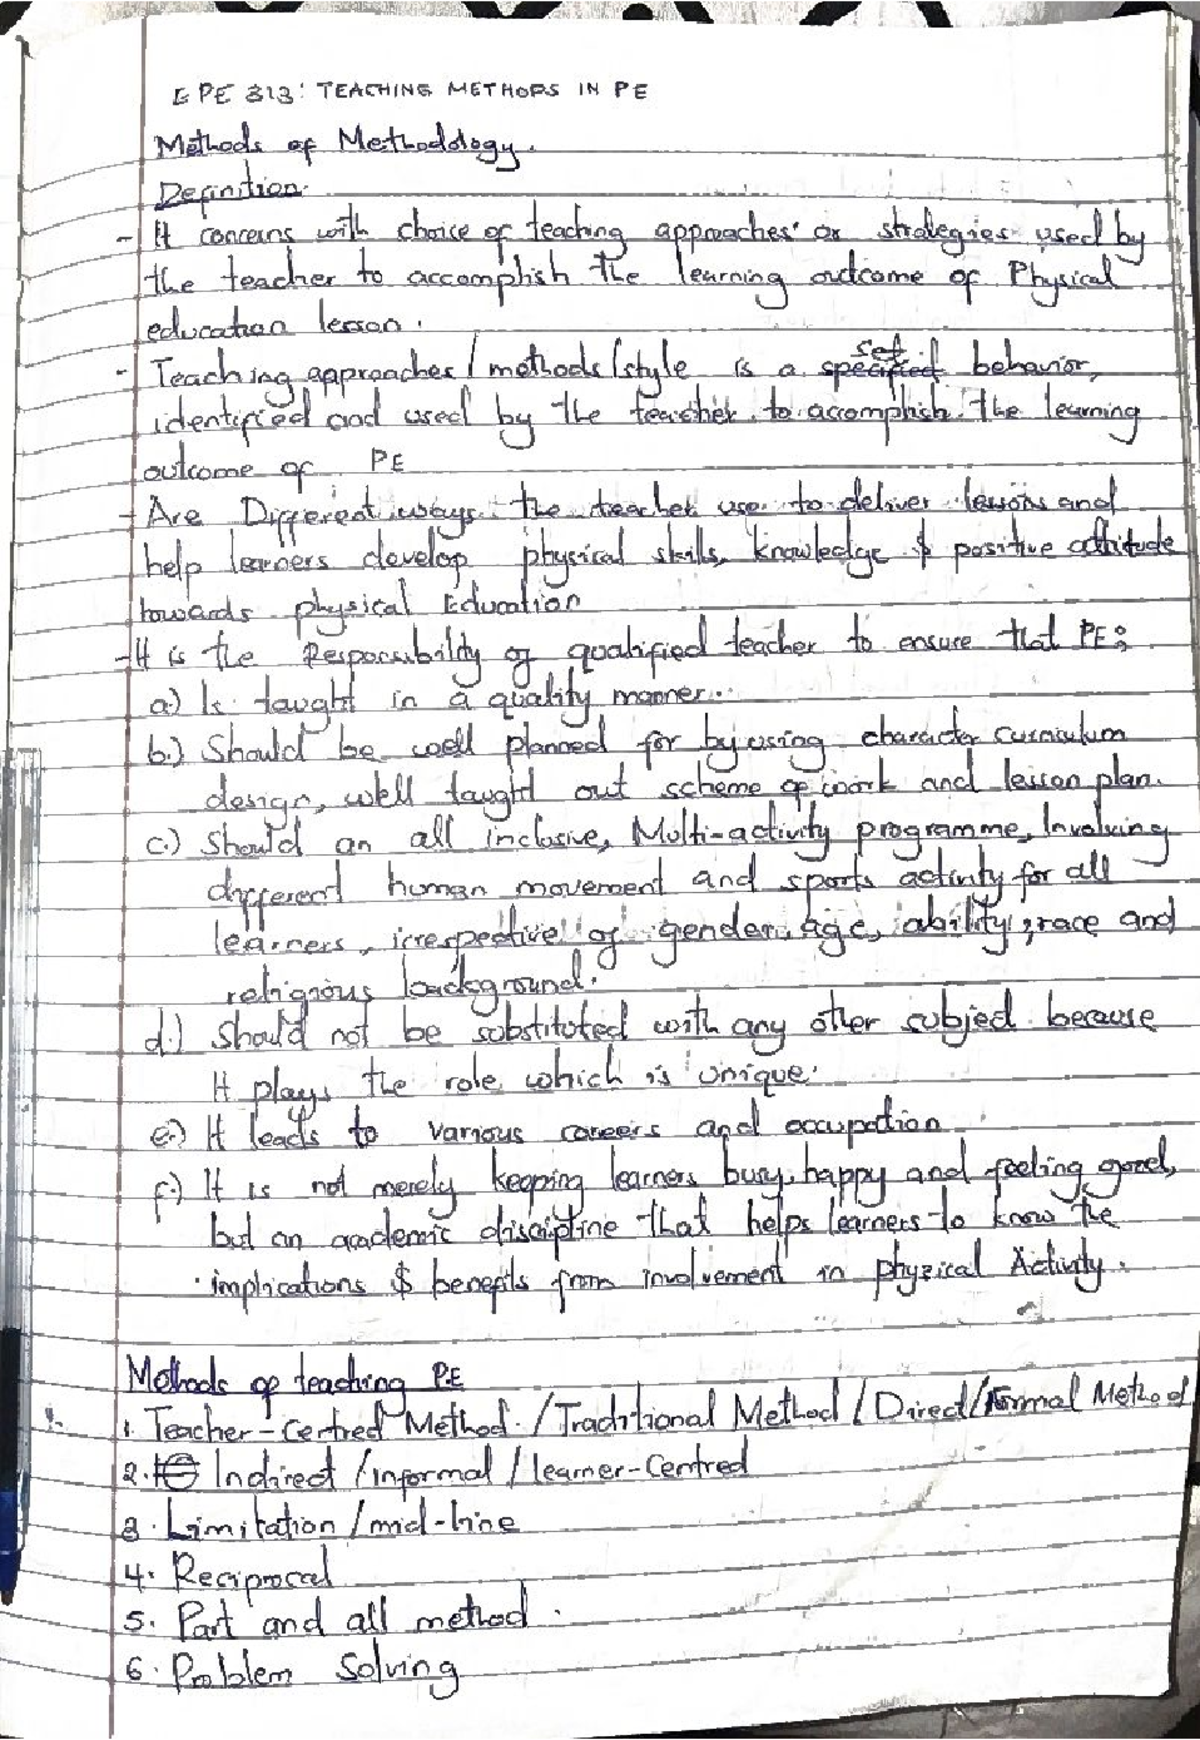 EPE 313: TEACHING METHODS IN PE
Methods of Methodology.
Definition.
- It concerns with choice of teaching approaches or strategies used by
the teacher to accomplish the learning outcome of Physical
education lesson.
- Teaching approaches / methods / style is a set specified behavior,
identified and used by the teacher to accomplish the learning
outcome of PE
- Are Different ways the teacher use to deliver lessons and
help learners develop physical skills, knowledge & positive attitude
towards physical Education
- It is the Responsibility of qualified teacher to ensure that PE;
a.) Is taught in a quality manner.
b.) Should be well planned for by using character curriculum
design, well taught out scheme of work and lesson plan.
c.) Should an all inclusive, Multi-activity programme, Involving
different human movement and sports activity for all
learners, irrespective of gender, age, ability, race and
religious background.
d.) Should not be substituted with any other subject because
It plays the role which is unique.
e.) It leads to various careers and occupation
f.) It is not merely keeping learners busy, happy and feeling good,
but an academic discipline that helps learners to know the
implications & benefits from involvement in physical Activity.
Methods of teaching P.E
1. Teacher-Centred Method. / Traditional Method / Direct / Formal Method
2. Indirect / informal / learner-Centred
3. Limitation / mid-line
4. Reciprocal
5. Part and all method.
6. Problem Solving